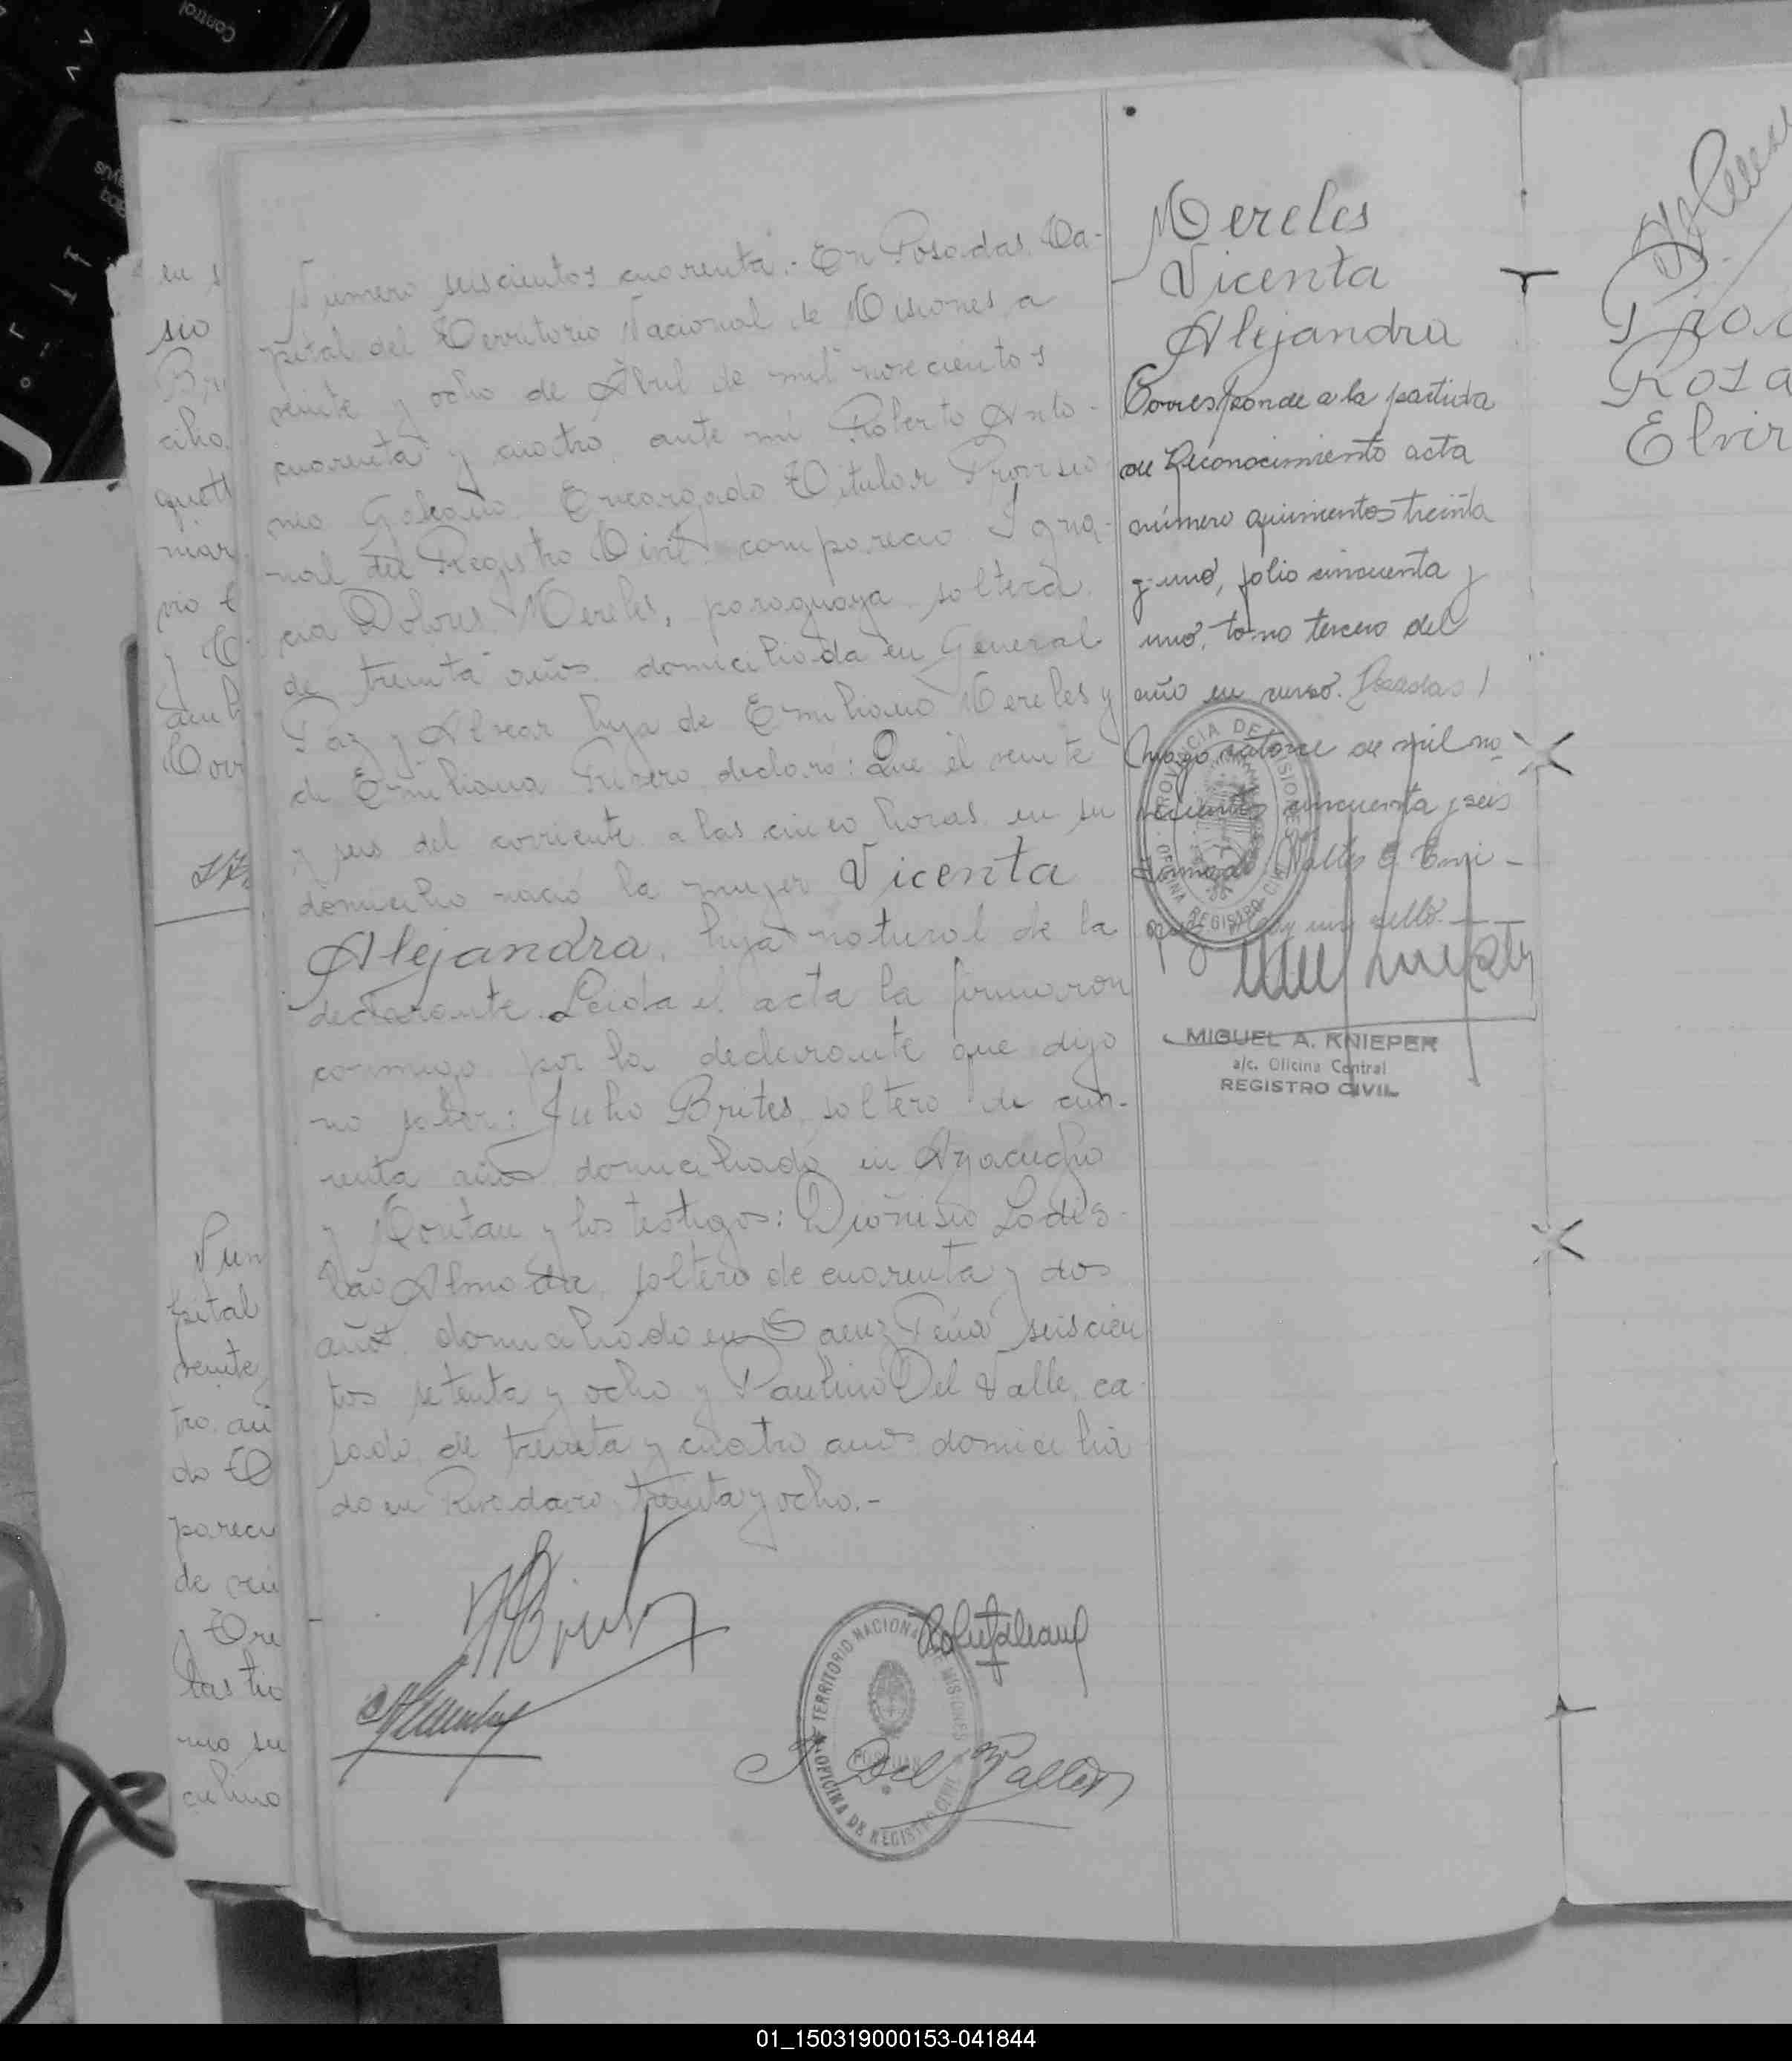 Número seiscientos cuarenta.- En Posadas, Ca-
pital del Territorio Nacional de Misiones, a
veinte y ocho de Abril de mil novecientos
cuarenta y cuatro, ante mi Roberto Anto-
nio Galeano, Encargado Titular Proviso
nal del Registro Civil comparecio Igna-
cia Dolores Mereles, paraguaya, soltera,
de treinta años, domiciliada en General
Paz y Alvear hija de Emiliano Mereles y
de Emiliana declaró: Que el veinte
y seis del corriente a las cinco horas en su
domicilio nació la mujer Vicenta
Alejandra, hija natural de la
declarante. Leida el acta la firmaron
conmigo por la declarante que dijo
no saber: Julio Brites, soltero de cua-
renta años domiciliado en Ayacucho
y y los testigos: Dionisio Ladis-
lao Almeda, soltero de cuarenta y dos
años, domiciliado en Saenz Peña seiscien
tos setenta y ocho y Paulino Del Valle, ca-
sado, de treinta y cuatro años domicilia
do en Rivadavia treinta y ocho.-
Mereles
Vicenta
Alejandra
Corresponde a la partida
de Reconocimiento acta
número quinientos treinta
y uno, folio cincuenta y
uno, tomo tercero del
año en curso. Posadas,
Mayo catorce de mil no-
vecientos cincuenta y seis
PROVINCIA DE MISIONES
OFICINA REGISTRO CIVIL
MIGUEL A. KNIEPER
a/c. Oficina Central
REGISTRO CIVIL
TERRITORIO NACIONAL DE MISIONES
POSADAS
OFICINA DE REGISTRO CIVIL
P. Del Valle
en s
sio
Bri
cilio
quett
mar
vio
y
Corr
Num
pital
veinte
tro, an
do
pareci
de vei
y
las
mo su
culino
Rosa
Elvir
Control
01_150319000153-041844